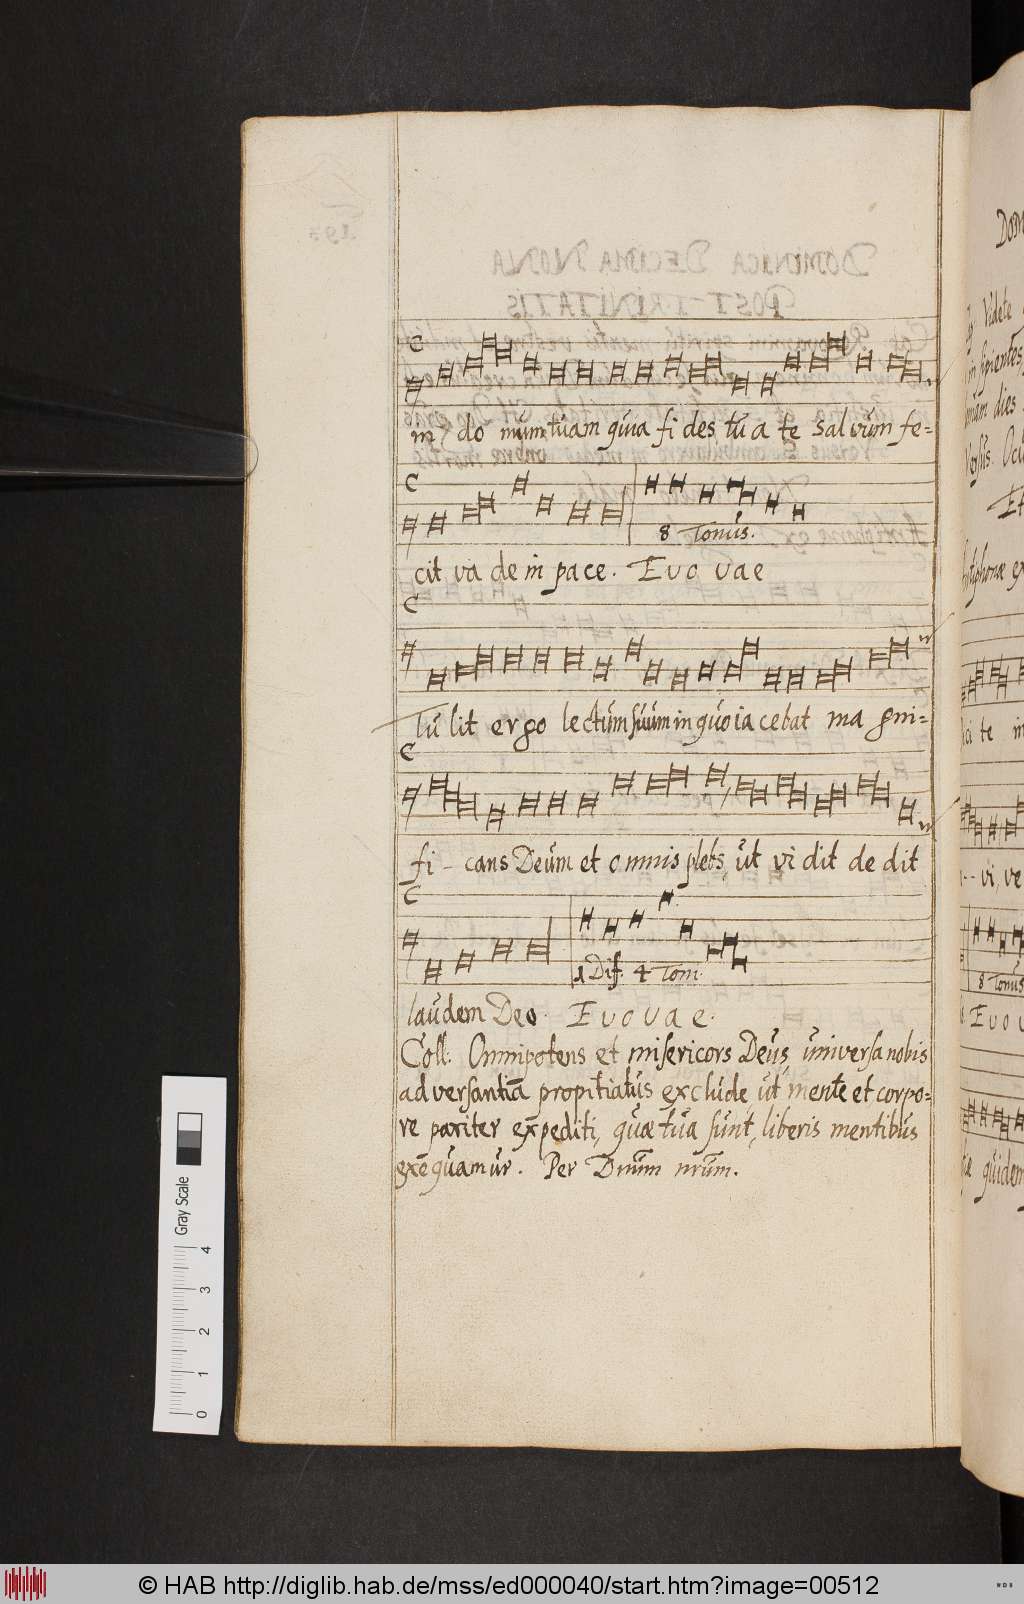 in, do mum tuam quia fi des tu a te salvum fe=
8 Tonus.
cit va de in pa ce. E v o v a e
Tu lit ergo lectum suum in quo ia cebat ma gni=
fi - cans Deum et omnis plebs, ut vi dit de dit
1 Dif. 4 Toni
laudem Deo. E v o v a e.
Coll. Omnipotens et misericors Deus, universa nobis
adversantia propitiatus exclude, ut mente et corpo=
re pariter expediti, quae tua sunt, liberis mentibus
exequamur. Per Dnum nrum.
Videte
8 Tonus
E v o v
quidem
Gray Scale
4
3
2
1
0
© HAB http://diglib.hab.de/mss/ed000040/start.htm?image=00512